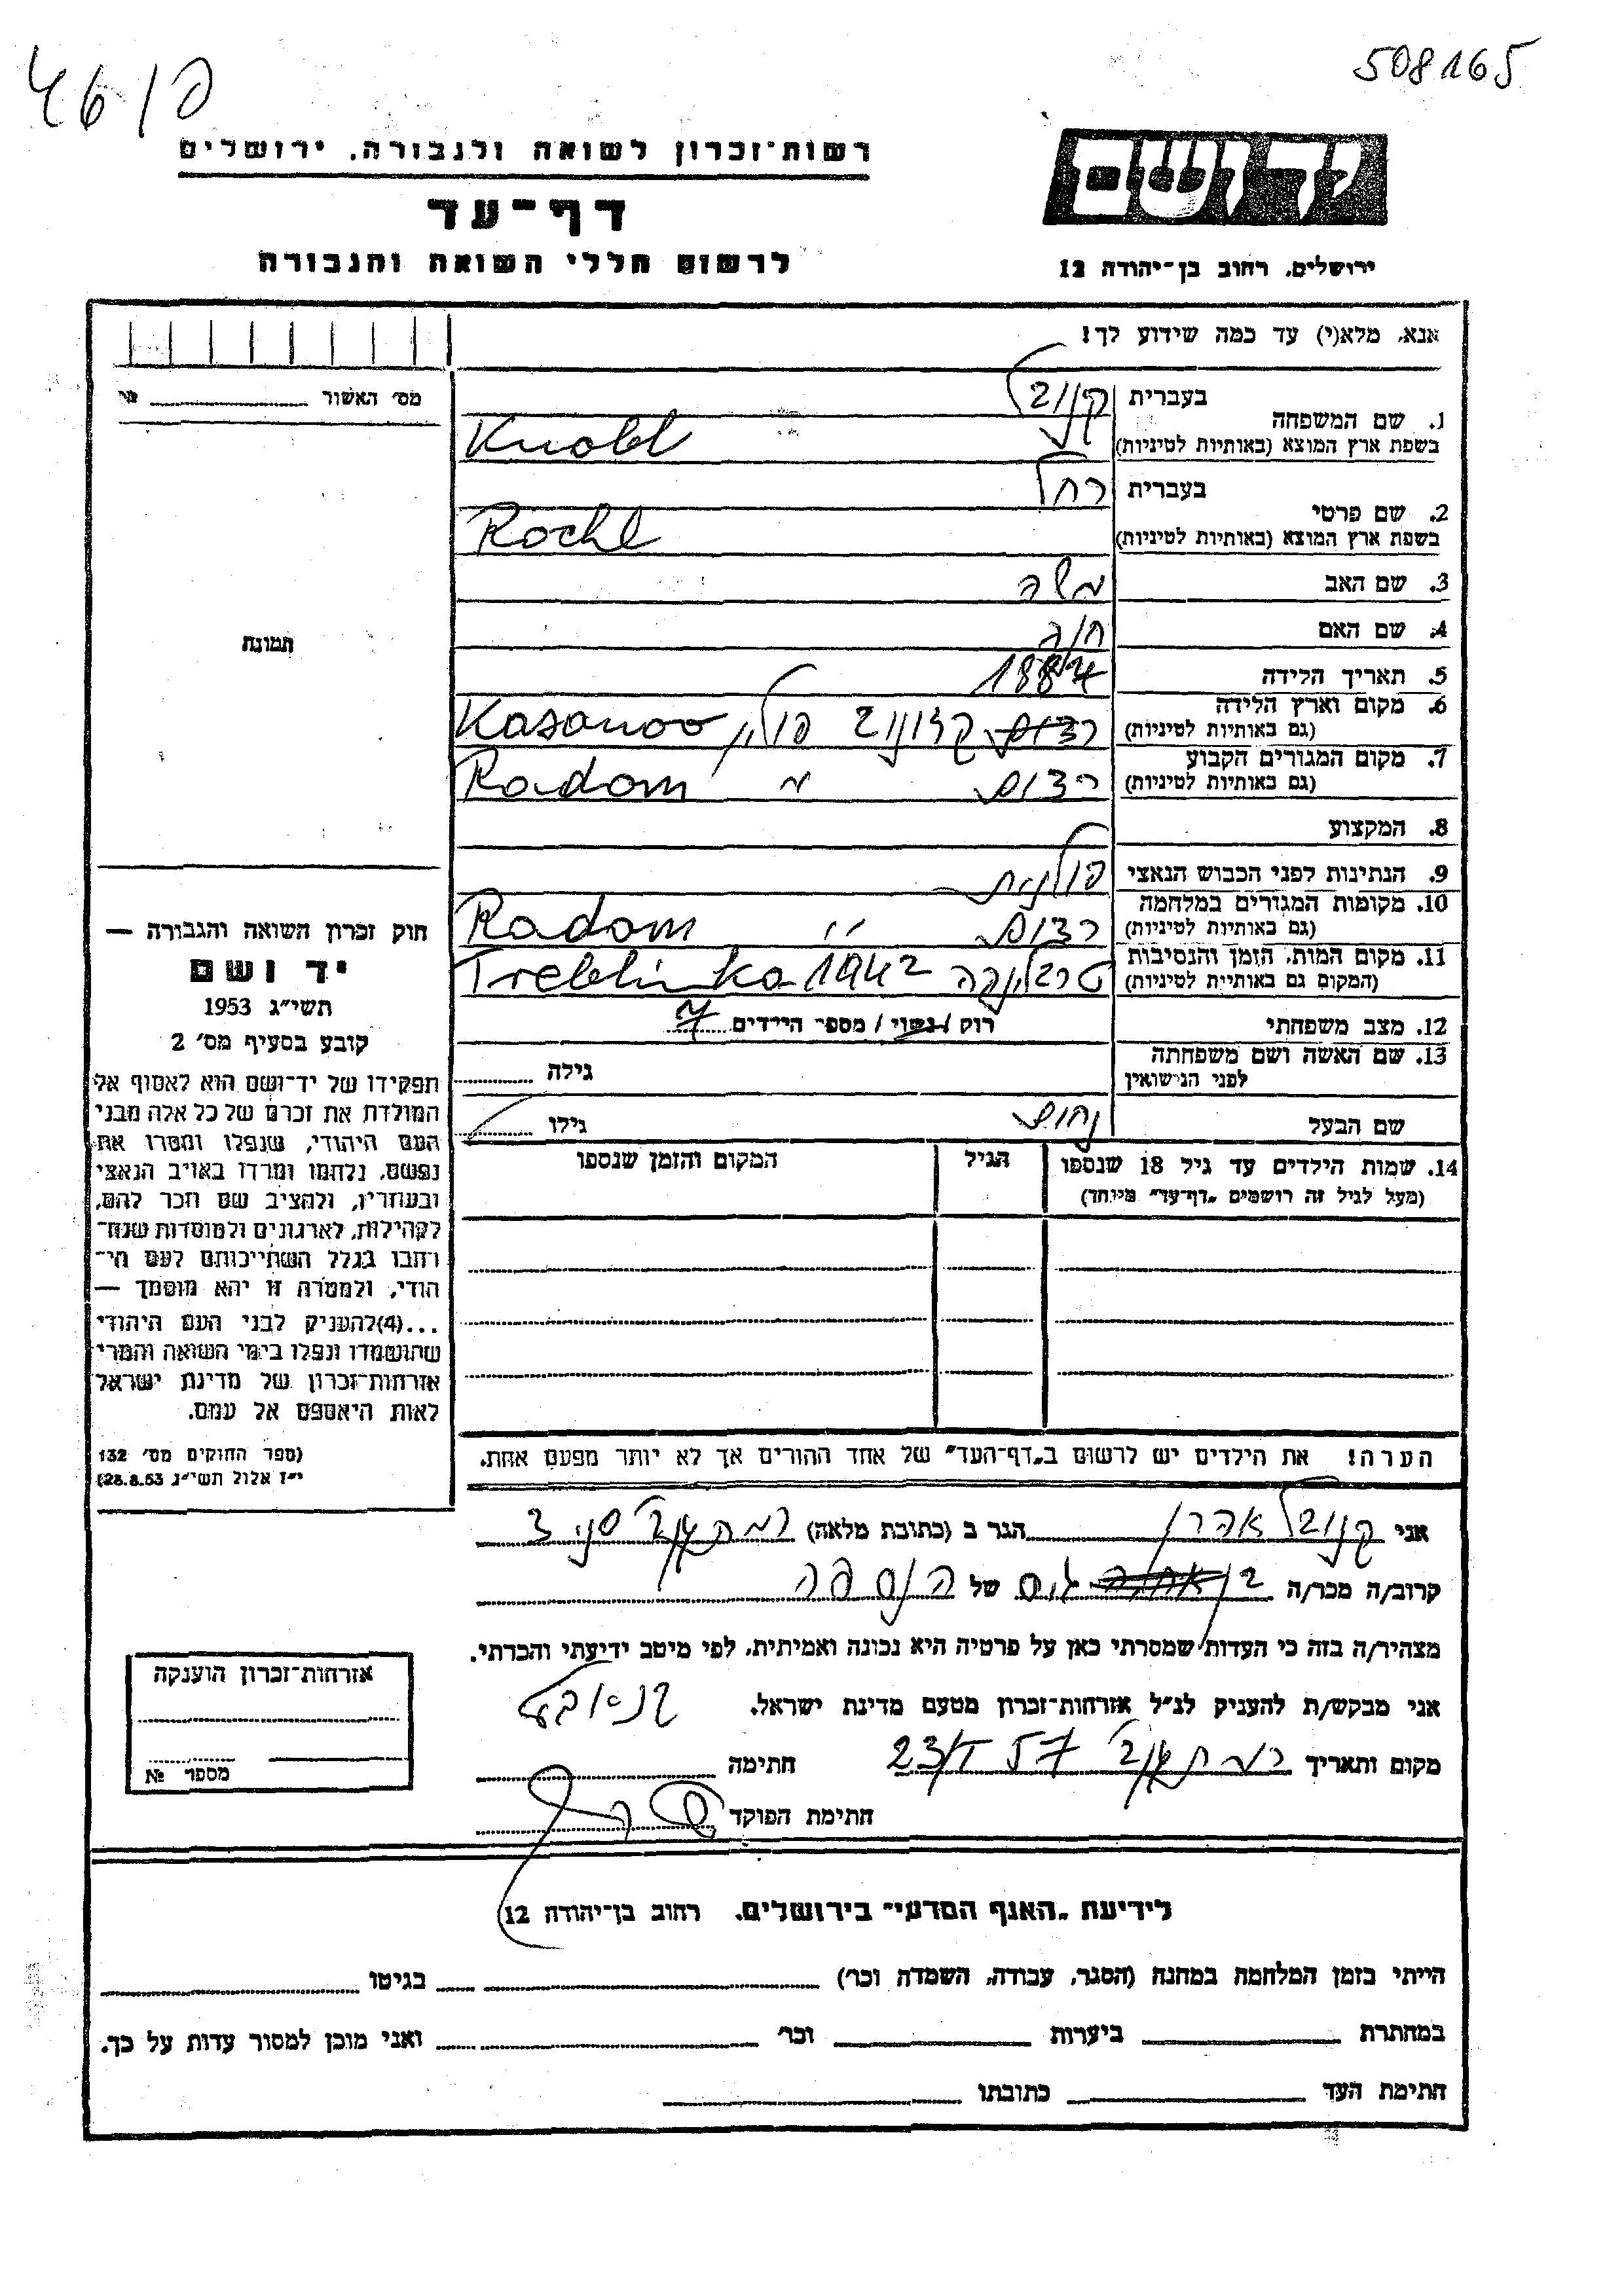 508165
46 / פ
יד ושם
רשות-זכרון לשואה ולגבורה, ירושלים
דף-עד
לרשום חללי השואה והגבורה
ירושלים, רחוב בן-יהודה 12
אנא, מלא(י) עד כמה שידוע לך!
מס׳ האשור № 
1. שם המשפחה
בעברית קנובל
בשפת ארץ המוצא (באותיות לטיניות) Knobl
2. שם פרטי
בעברית רחל
בשפת ארץ המוצא (באותיות לטיניות) Rochl
3. שם האב משה
4. שם האם חיה
5. תאריך הלידה 1887
6. מקום וארץ הלידה
(גם באותיות לטיניות) רדום קזנוב פולין Kasanoo
7. מקום המגורים הקבוע
(גם באותיות לטיניות) רדום " Radom
8. המקצוע
9. הנתינות לפני הכבוש הנאצי פולנית
10. מקומות המגורים במלחמה
(גם באותיות לטיניות) רדום " Radom
11. מקום המות, הזמן והנסיבות
(המקום גם באותיות לטיניות) טרבלינקה 1942 Treblinka
12. מצב משפחתי רוק / נשוי / מספר הילדים 7
13. שם האשה ושם משפחתה
לפני הנישואין גילה
שם הבעל נחום גילו
14. שמות הילדים עד גיל 18 שנספו הגיל המקום והזמן שנספו
(מעל לגיל זה רושמים „דף-עד" מיוחד)
תמונה
חוק זכרון השואה והגבורה —
יד ושם
תשי״ג 1953
קובע בסעיף מס׳ 2
תפקידו של יד-ושם הוא לאסוף אל
המולדת את זכרם של כל אלה מבני
העם היהודי, שנפלו ומסרו את
נפשם, נלחמו ומרדו באויב הנאצי
ובעוזריו, ולהציב שם וזכר להם,
לקהילות, לארגונים ולמוסדות שנח-
רבו בגלל השתייכותם לעם הי-
הודי, ולמטרה זו יהא מוסמך —
...(4) להעניק לבני העם היהודי
שהושמדו ונפלו בימי השואה והמרי
אזרחות-זכרון של מדינת ישראל
לאות היאספם אל עמם.
(ספר החוקים מס׳ 132
י״ז אלול תשי״ג 28.8.53)
הערה! את הילדים יש לרשום ב„דף-העד" של אחד ההורים אך לא יותר מפעם אחת.
אני קנובל אהרן הגר ב (כתובת מלאה) רמת גן
קרוב/ה מכר/ה בן גיס של הנספה
מצהיר/ה בזה כי העדות שמסרתי כאן על פרטיה היא נכונה ואמיתית, לפי מיטב ידיעתי והכרתי.
אני מבקש/ת להעניק לנ״ל אזרחות-זכרון מטעם מדינת ישראל.
מקום ותאריך חתימה
חתימת הפוקד
אזרחות-זכרון הוענקה
מספר №
לידיעת „האגף המדעי" בירושלים, רחוב בן-יהודה 12
הייתי בזמן המלחמה במחנה (הסגר, עבודה, השמדה וכר׳) בגיטו
במחתרת ביערות וכר׳ ואני מוכן למסור עדות על כך.
חתימת העד כתובתו